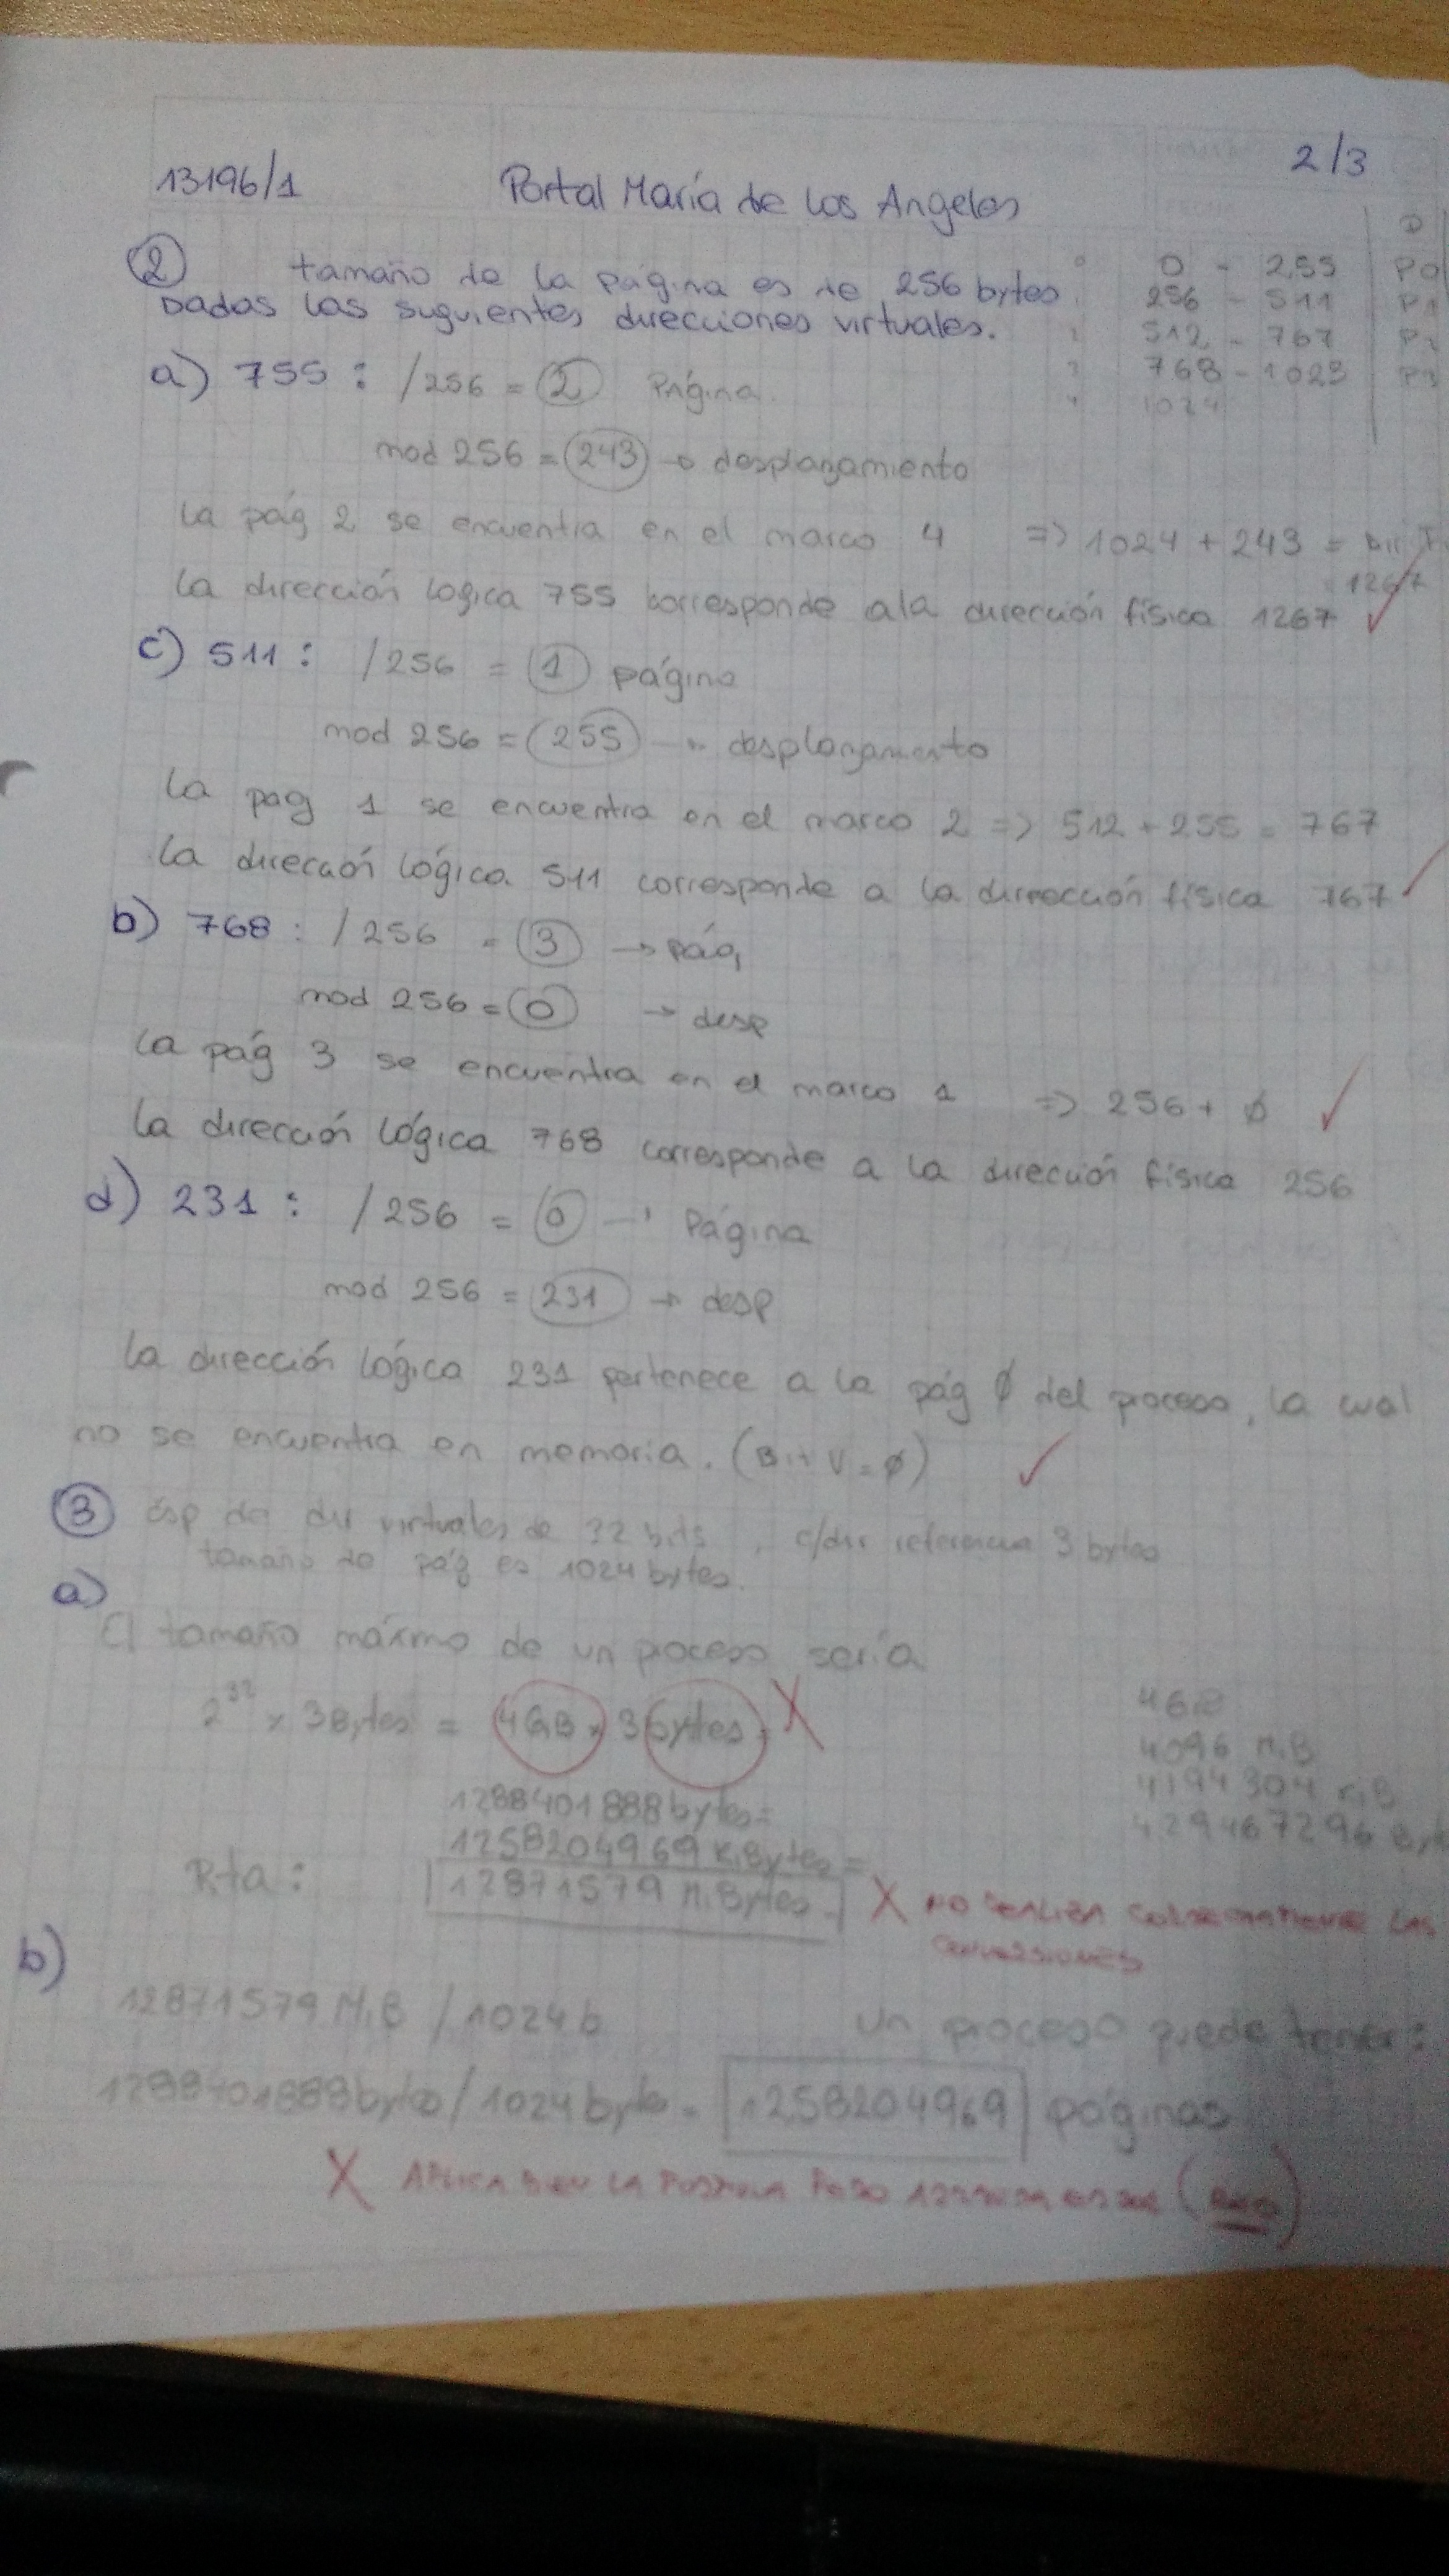 13196/1 Portal María de Los Angeles 2/3
② tamaño de la página es de 256 bytes
Dadas las siguientes direcciones virtuales.
0 - 255 P0
256 - 511 P1
512 - 767 P2
768 - 1023 P3
1024
a) 755 : /256 = 2 Página
mod 256 = 243 → desplazamiento
La pág 2 se encuentra en el marco 4 => 1024 + 243 =
1267
La dirección logica 755 corresponde a la dirección física 1267 ✓
c) 511 : /256 = 1 página
mod 256 = 255 → desplazamiento
La pag 1 se encuentra en el marco 2 => 512 + 255 = 767
La dirección lógica 511 corresponde a la dirección física 767 ✓
b) 768 : /256 = 3 → pág
mod 256 = 0 → desp
La pág 3 se encuentra en el marco 1 => 256 + ∅ ✓
La dirección lógica 768 corresponde a la dirección física 256
d) 231 : /256 = 0 → Página
mod 256 = 231 → desp
La dirección lógica 231 pertenece a la pág ∅ del proceso, la cual
no se encuentra en memoria. (Bit V = ∅) ✓
③ Esp de dir virtuales de 32 bits, c/dir referencia 3 bytes
tamaño de pág es 1024 bytes.
a)
El tamaño máximo de un proceso sería
2^32 x 3Bytes = 4GiB x 3bytes = X
4GiB
4096 MiB
4194304 KiB
4294967296 Byt
1288401888bytes =
1258204969 KiBytes =
Rta : 12871579 MiBytes. X NO REALIZA CORRECTAMENTE LAS
CONVERSIONES
b)
12871579 MiB / 1024 b un proceso puede tener :
1288401888bytes / 1024 byte = 1258204969 páginas
X APLICA BIEN LA